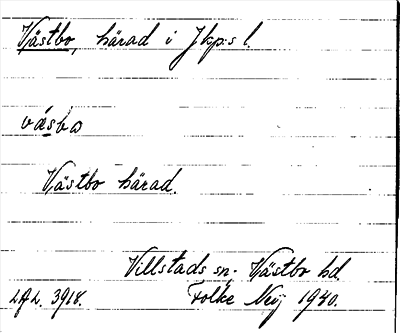 Västbo, härad i Jkp:s l.
väsbω
Västbo härad.
Villstads sn. Västbo hd.
LAL. 3918. Folke Nij 1940.